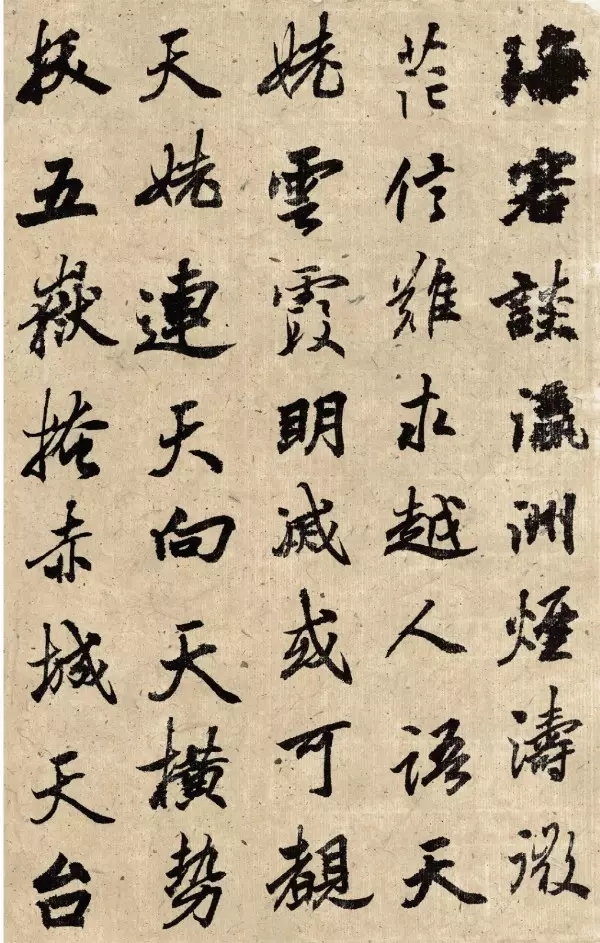 海客談瀛洲煙濤微
茫信難求越人語天
姥雲霞明滅或可覩
天姥連天向天橫勢
拔五嶽掩赤城天台